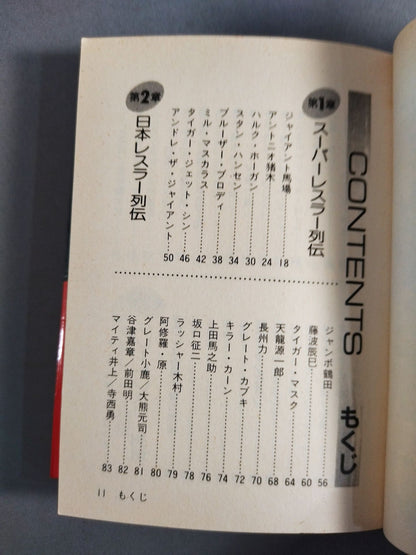 CONTENTS もくじ
第1章 スーパーレスラー列伝
ジャイアント馬場 18
アントニオ猪木 24
ハルク・ホーガン 30
スタン・ハンセン 34
ブルーザー・ブロディ 38
ミル・マスカラス 42
タイガー・ジェット・シン 46
アンドレ・ザ・ジャイアント 50
第2章 日本レスラー列伝
ジャンボ鶴田 56
藤波辰巳 60
タイガー・マスク 64
天龍源一郎 68
長州力 70
グレート・カブキ 72
キラー・カーン 74
上田馬之助 76
坂口征二 78
ラッシャー木村 79
阿修羅・原 80
グレート小鹿/大熊元司 81
谷津嘉章/前田明 82
マイティ井上/寺西勇 83
11 もくじ